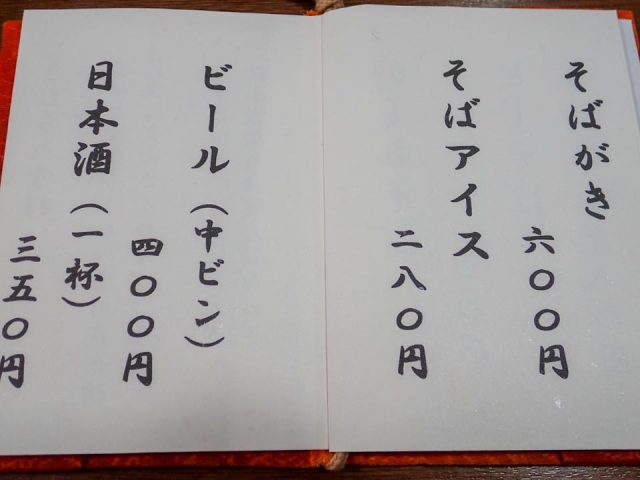 そばがき
六〇〇円
そばアイス
二八〇円
ビール（中ビン）
四〇〇円
日本酒（一杯）
三五〇円